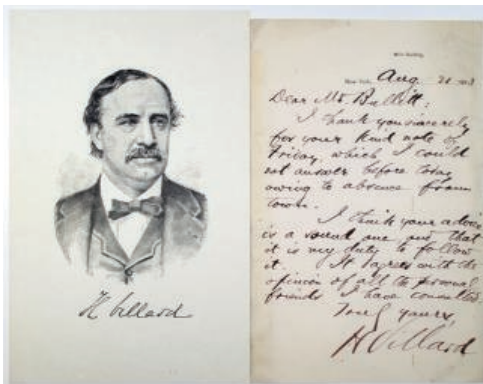 H Villard
New York, Aug 21
Dear Mr. Bullitt:
I thank you sincerely
for your kind note of
Friday, which I could
not answer before today
owing to absence from
town.
I think your advice
is a sound one and that
it is my duty to follow
it. It agrees with the
opinion of all the personal
friends I have consulted
Truly yours,
H Villard